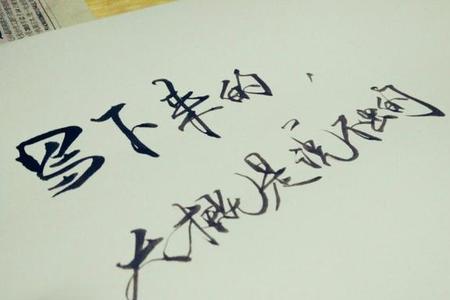 写下来的，
大概是说不出的